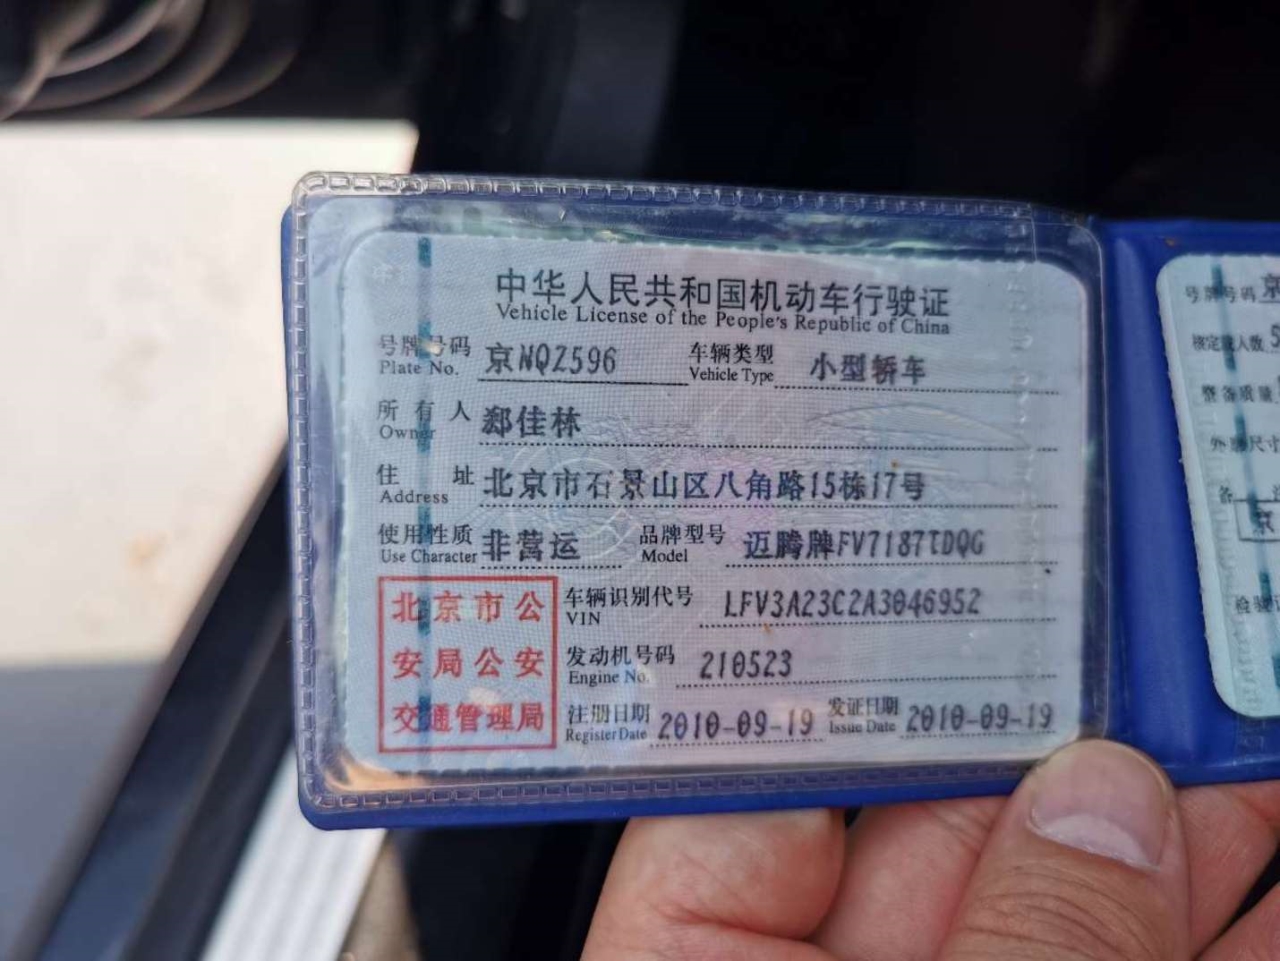 中华人民共和国机动车行驶证
Vehicle License of the People's Republic of China
号牌号码 京NQZ596 车辆类型 小型轿车
Plate No. Vehicle Type
所有人 郄佳林
Owner
住址 北京市石景山区八角路15栋17号
Address
使用性质 非营运 品牌型号 迈腾牌FV7187TDQG
Use Character Model
北京市公
安局公安
交通管理局
车辆识别代号 LFV3A23C2A3046952
VIN
发动机号码 210523
Engine No.
注册日期 2010-09-19 发证日期 2010-09-19
Register Date Issue Date
号牌号码 京
核定载人数 5
整备质量
外廓尺寸
京